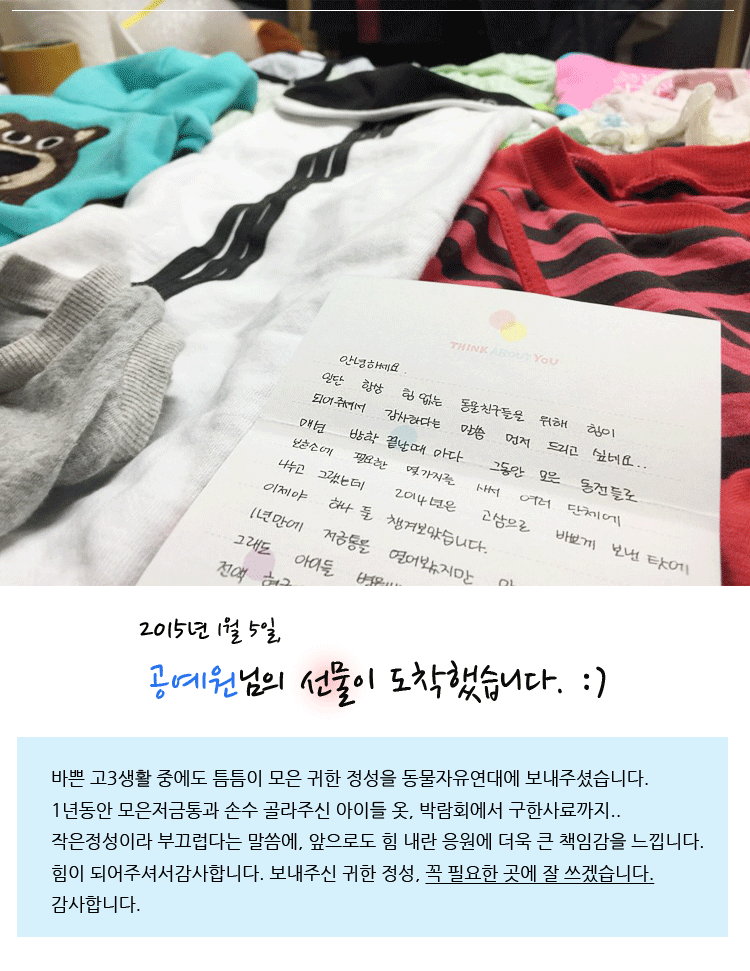 THINK ABOUT YOU
안녕하세요.
일단 항상 힘 없는 동물친구들을 위해 힘이
되어주셔서 감사하다는 말씀 먼저 드리고 싶네요..
매년 방학 끝날때 마다 그동안 모은 동전들로
보호소에 필요한 몇가지를 사서 여러 단체에
나누고 그랬는데 2014년은 고삼으로 바쁘게 보낸 탓에
이제야 하나 둘 챙겨보았습니다.
1년만에 저금통을 열어보았지만
그래도 아이들
전액
2015년 1월 5일,
공예원님의 선물이 도착했습니다. :)
바쁜 고3생활 중에도 틈틈이 모은 귀한 정성을 동물자유연대에 보내주셨습니다.
1년동안 모은저금통과 손수 골라주신 아이들 옷, 박람회에서 구한사료까지..
작은정성이라 부끄럽다는 말씀에, 앞으로도 힘 내란 응원에 더욱 큰 책임감을 느낍니다.
힘이 되어주셔서감사합니다. 보내주신 귀한 정성, 꼭 필요한 곳에 잘 쓰겠습니다.
감사합니다.